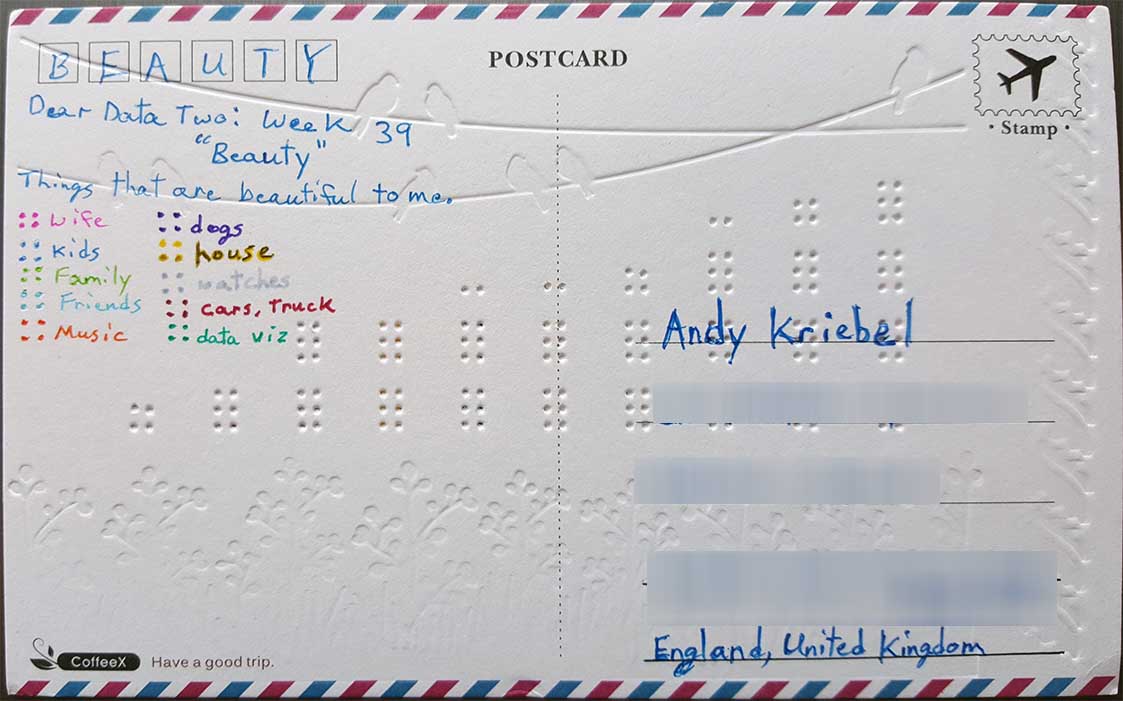 BEAUTY
POSTCARD
Stamp
Dear Data Two: Week 39
"Beauty"
Things that are beautiful to me.
wife
dogs
Kids
house
Family
watches
Friends
cars, truck
Music
data viz
Andy Kriebel
England, United Kingdom
CoffeeX Have a good trip.